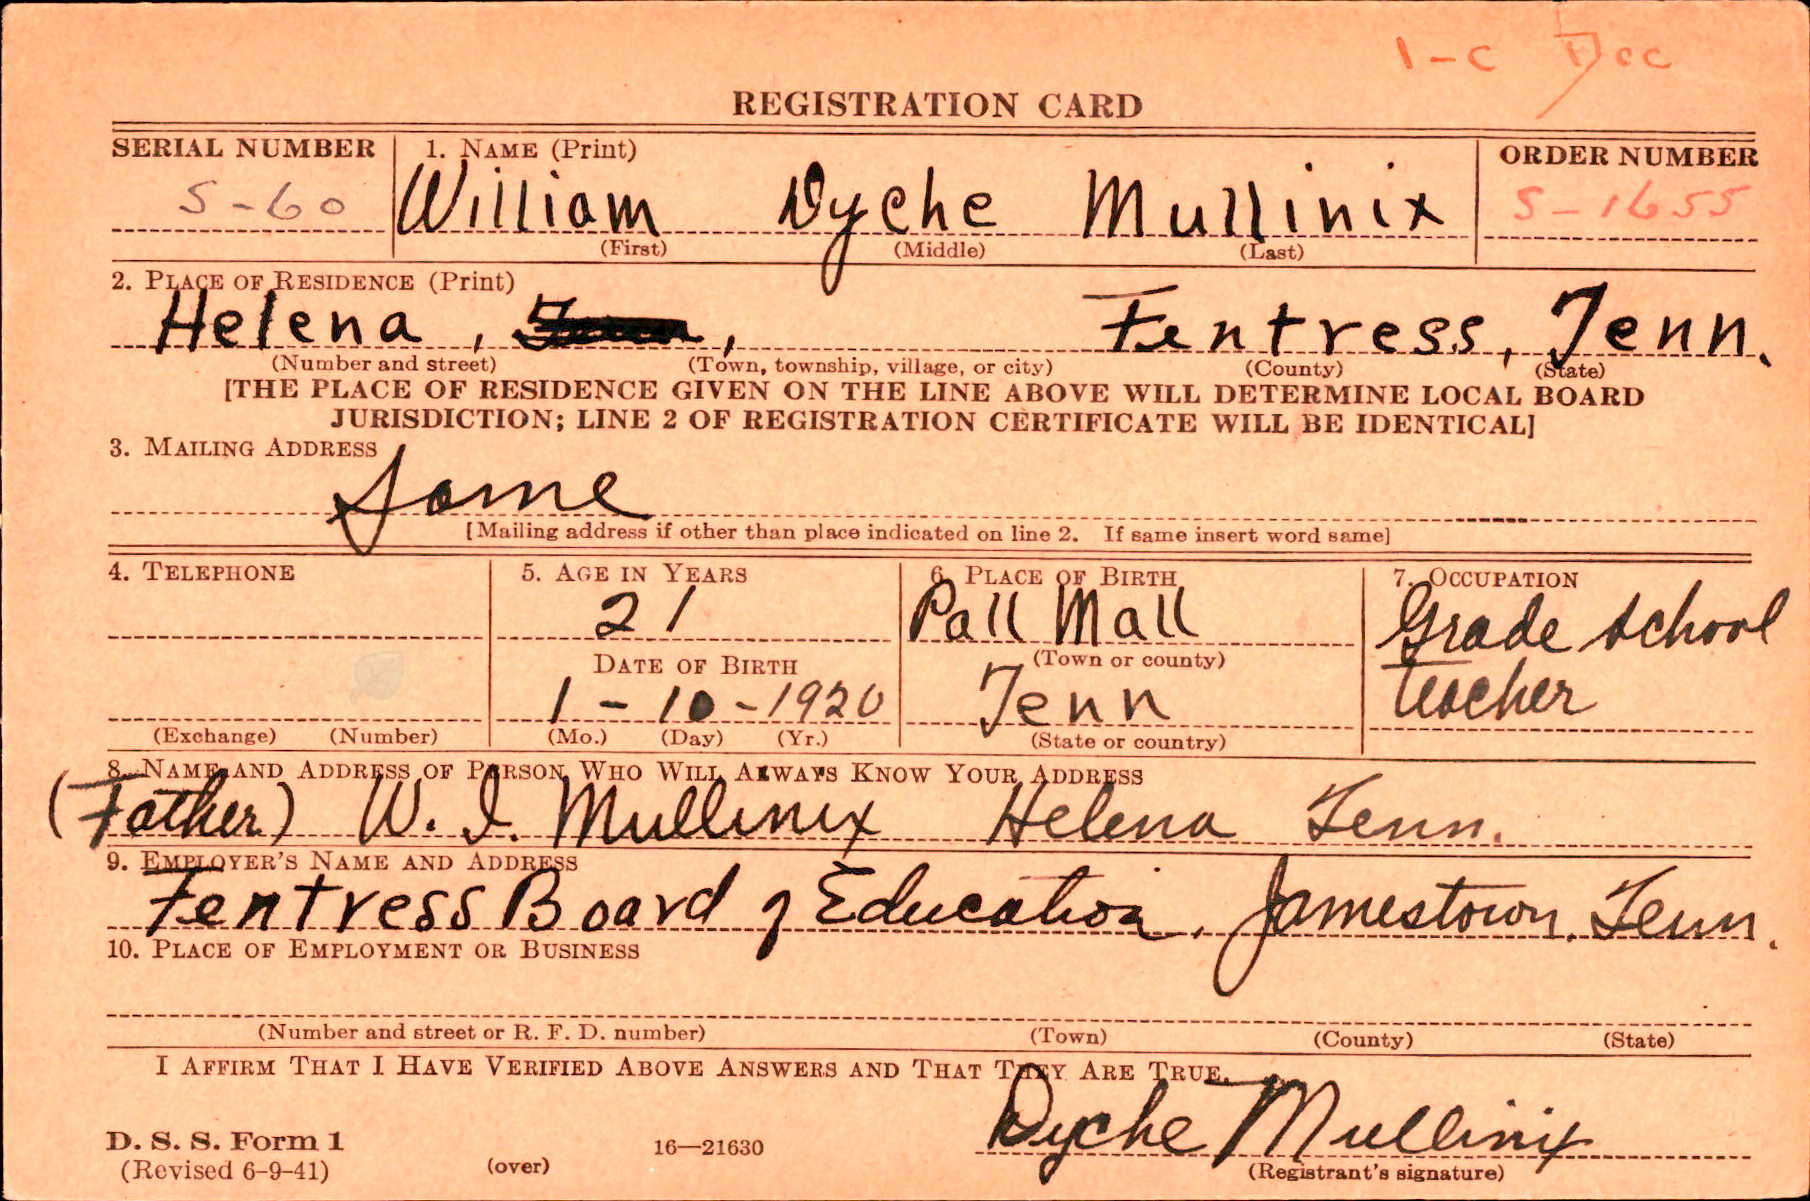 1-C
REGISTRATION CARD
SERIAL NUMBER 1. NAME (Print) ORDER NUMBER
S-60 William Dyche Mullinix S-1655
(First) (Middle) (Last)
2. PLACE OF RESIDENCE (Print)
Helena, , Fentress, Tenn.
(Number and street) (Town, township, village, or city) (County) (State)
[THE PLACE OF RESIDENCE GIVEN ON THE LINE ABOVE WILL DETERMINE LOCAL BOARD
JURISDICTION; LINE 2 OF REGISTRATION CERTIFICATE WILL BE IDENTICAL]
3. MAILING ADDRESS
Same
[Mailing address if other than place indicated on line 2. If same insert word same]
4. TELEPHONE 5. AGE IN YEARS 6. PLACE OF BIRTH 7. OCCUPATION
21 Pall Mall Grade school
DATE OF BIRTH (Town or county)
1-10-1920 Tenn teacher
(Exchange) (Number) (Mo.) (Day) (Yr.) (State or country)
8. NAME AND ADDRESS OF PERSON WHO WILL ALWAYS KNOW YOUR ADDRESS
(Father) W. I. Mullinix Helena Tenn.
9. EMPLOYER'S NAME AND ADDRESS
Fentress Board of Education. Jamestown. Tenn.
10. PLACE OF EMPLOYMENT OR BUSINESS
(Number and street or R. F. D. number) (Town) (County) (State)
I AFFIRM THAT I HAVE VERIFIED ABOVE ANSWERS AND THAT THEY ARE TRUE.
Dyche Mullinix
D. S. S. Form 1
(Revised 6-9-41) (over) 16—21630 (Registrant's signature)